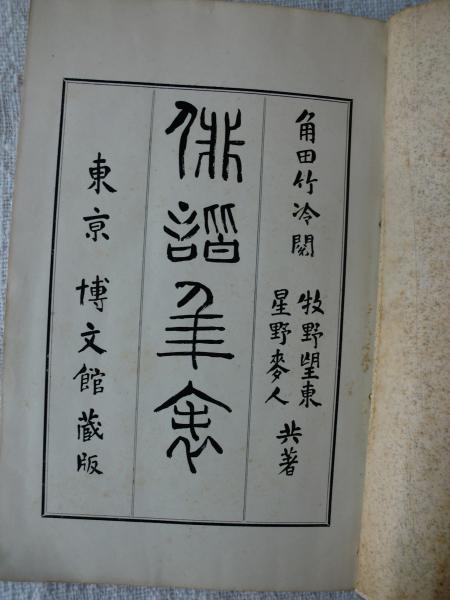 角田竹冷閲
牧野望東
星野麥人
共著
俳諧年表
東京 博文館藏版